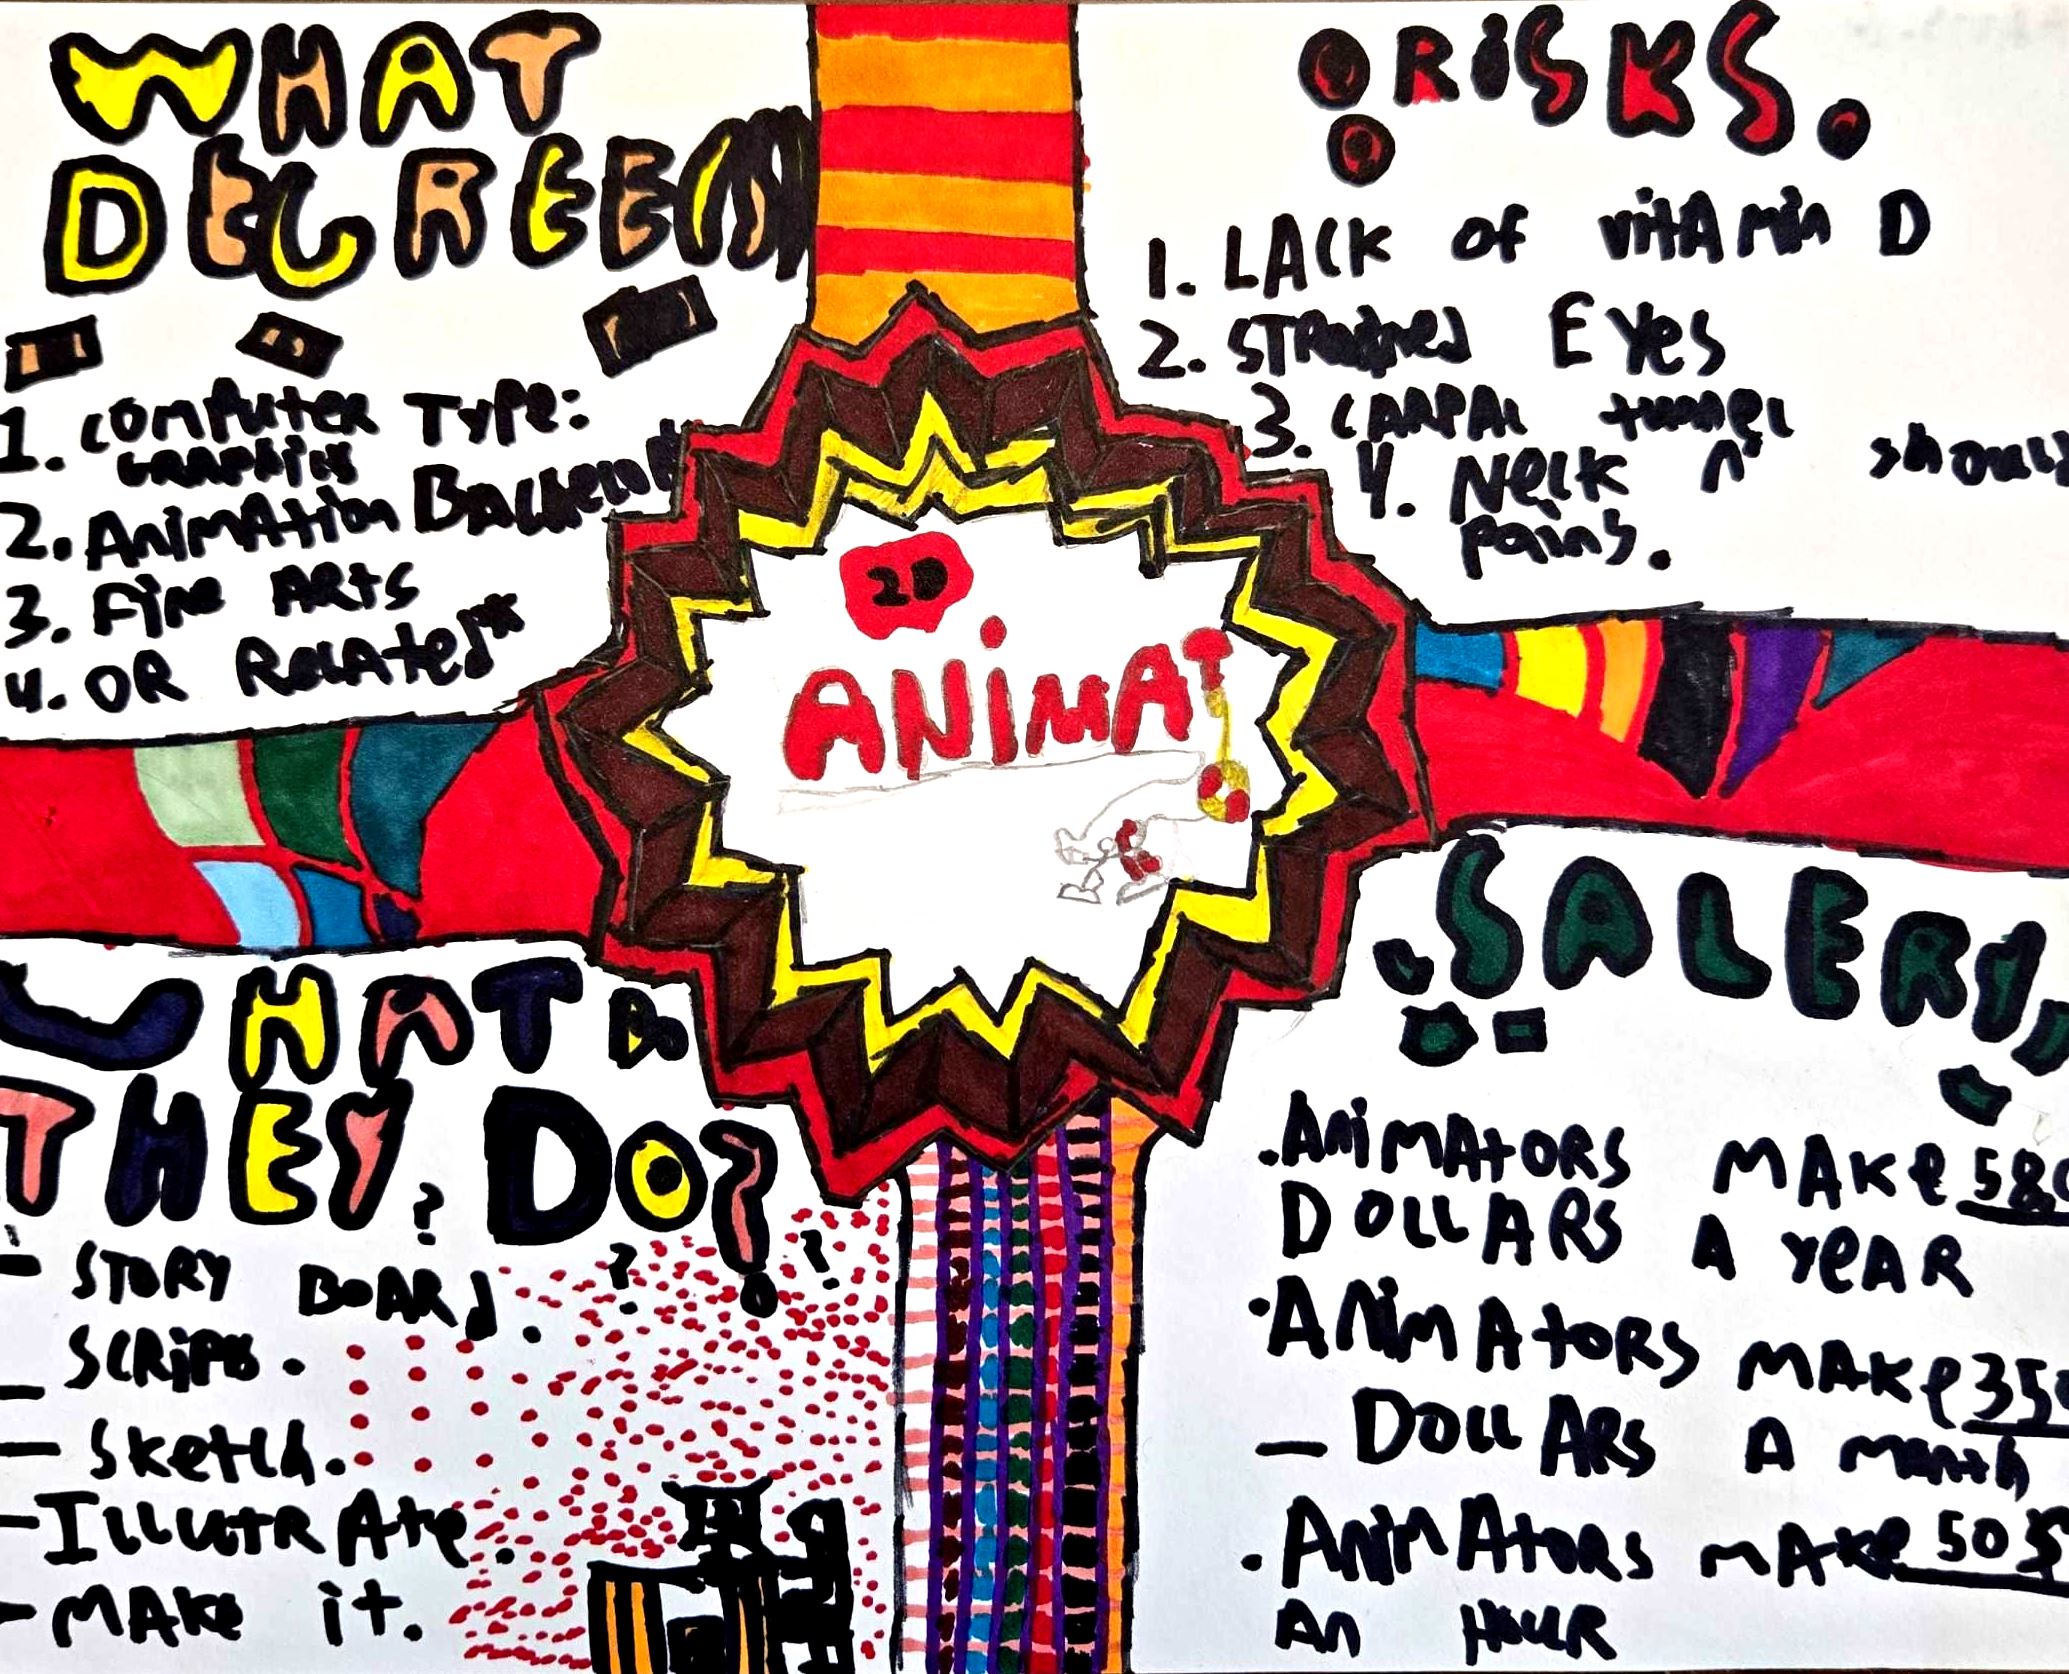 WHAT
DEGREE(S)
1. COMPUTER TYPE:
GRAPHICS
2. ANIMATION
3. FINE ARTS
4. OR RELATED*
RISKS.
1. LACK OF VITAMIN D
2. STRAINED EYES
3. CARPAL TUNNEL
4. NECK
PAINS.
2D
ANIMAT
WHAT DO
THEY DO?
- STORY BOARD.
SCRIPT.
- SKETCH.
- ILLUTRATE.
- MAKE IT.
SALERY
. ANIMATORS MAKE
DOLLARS A YEAR
. ANIMATORS MAKE
- DOLLARS A MONTH
. ANIMATORS MAKE 50$
AN HOUR